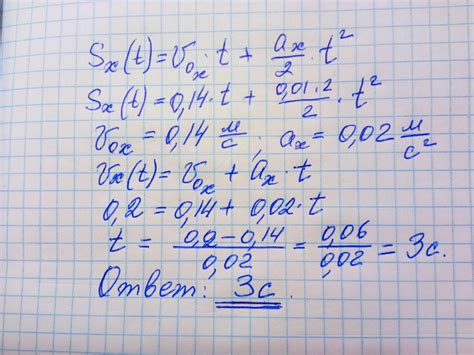 Sₓ(t) = v₀ₓ · t + aₓ/2 · t²
Sₓ(t) = 0,14 · t + 0,01·2/2 · t²
v₀ₓ = 0,14 м/с ; aₓ = 0,02 м/с²
vₓ(t) = v₀ₓ + aₓ · t
0,2 = 0,14 + 0,02 · t
t = 0,2 - 0,14/0,02 = 0,06/0,02 = 3с.
Ответ: 3с.